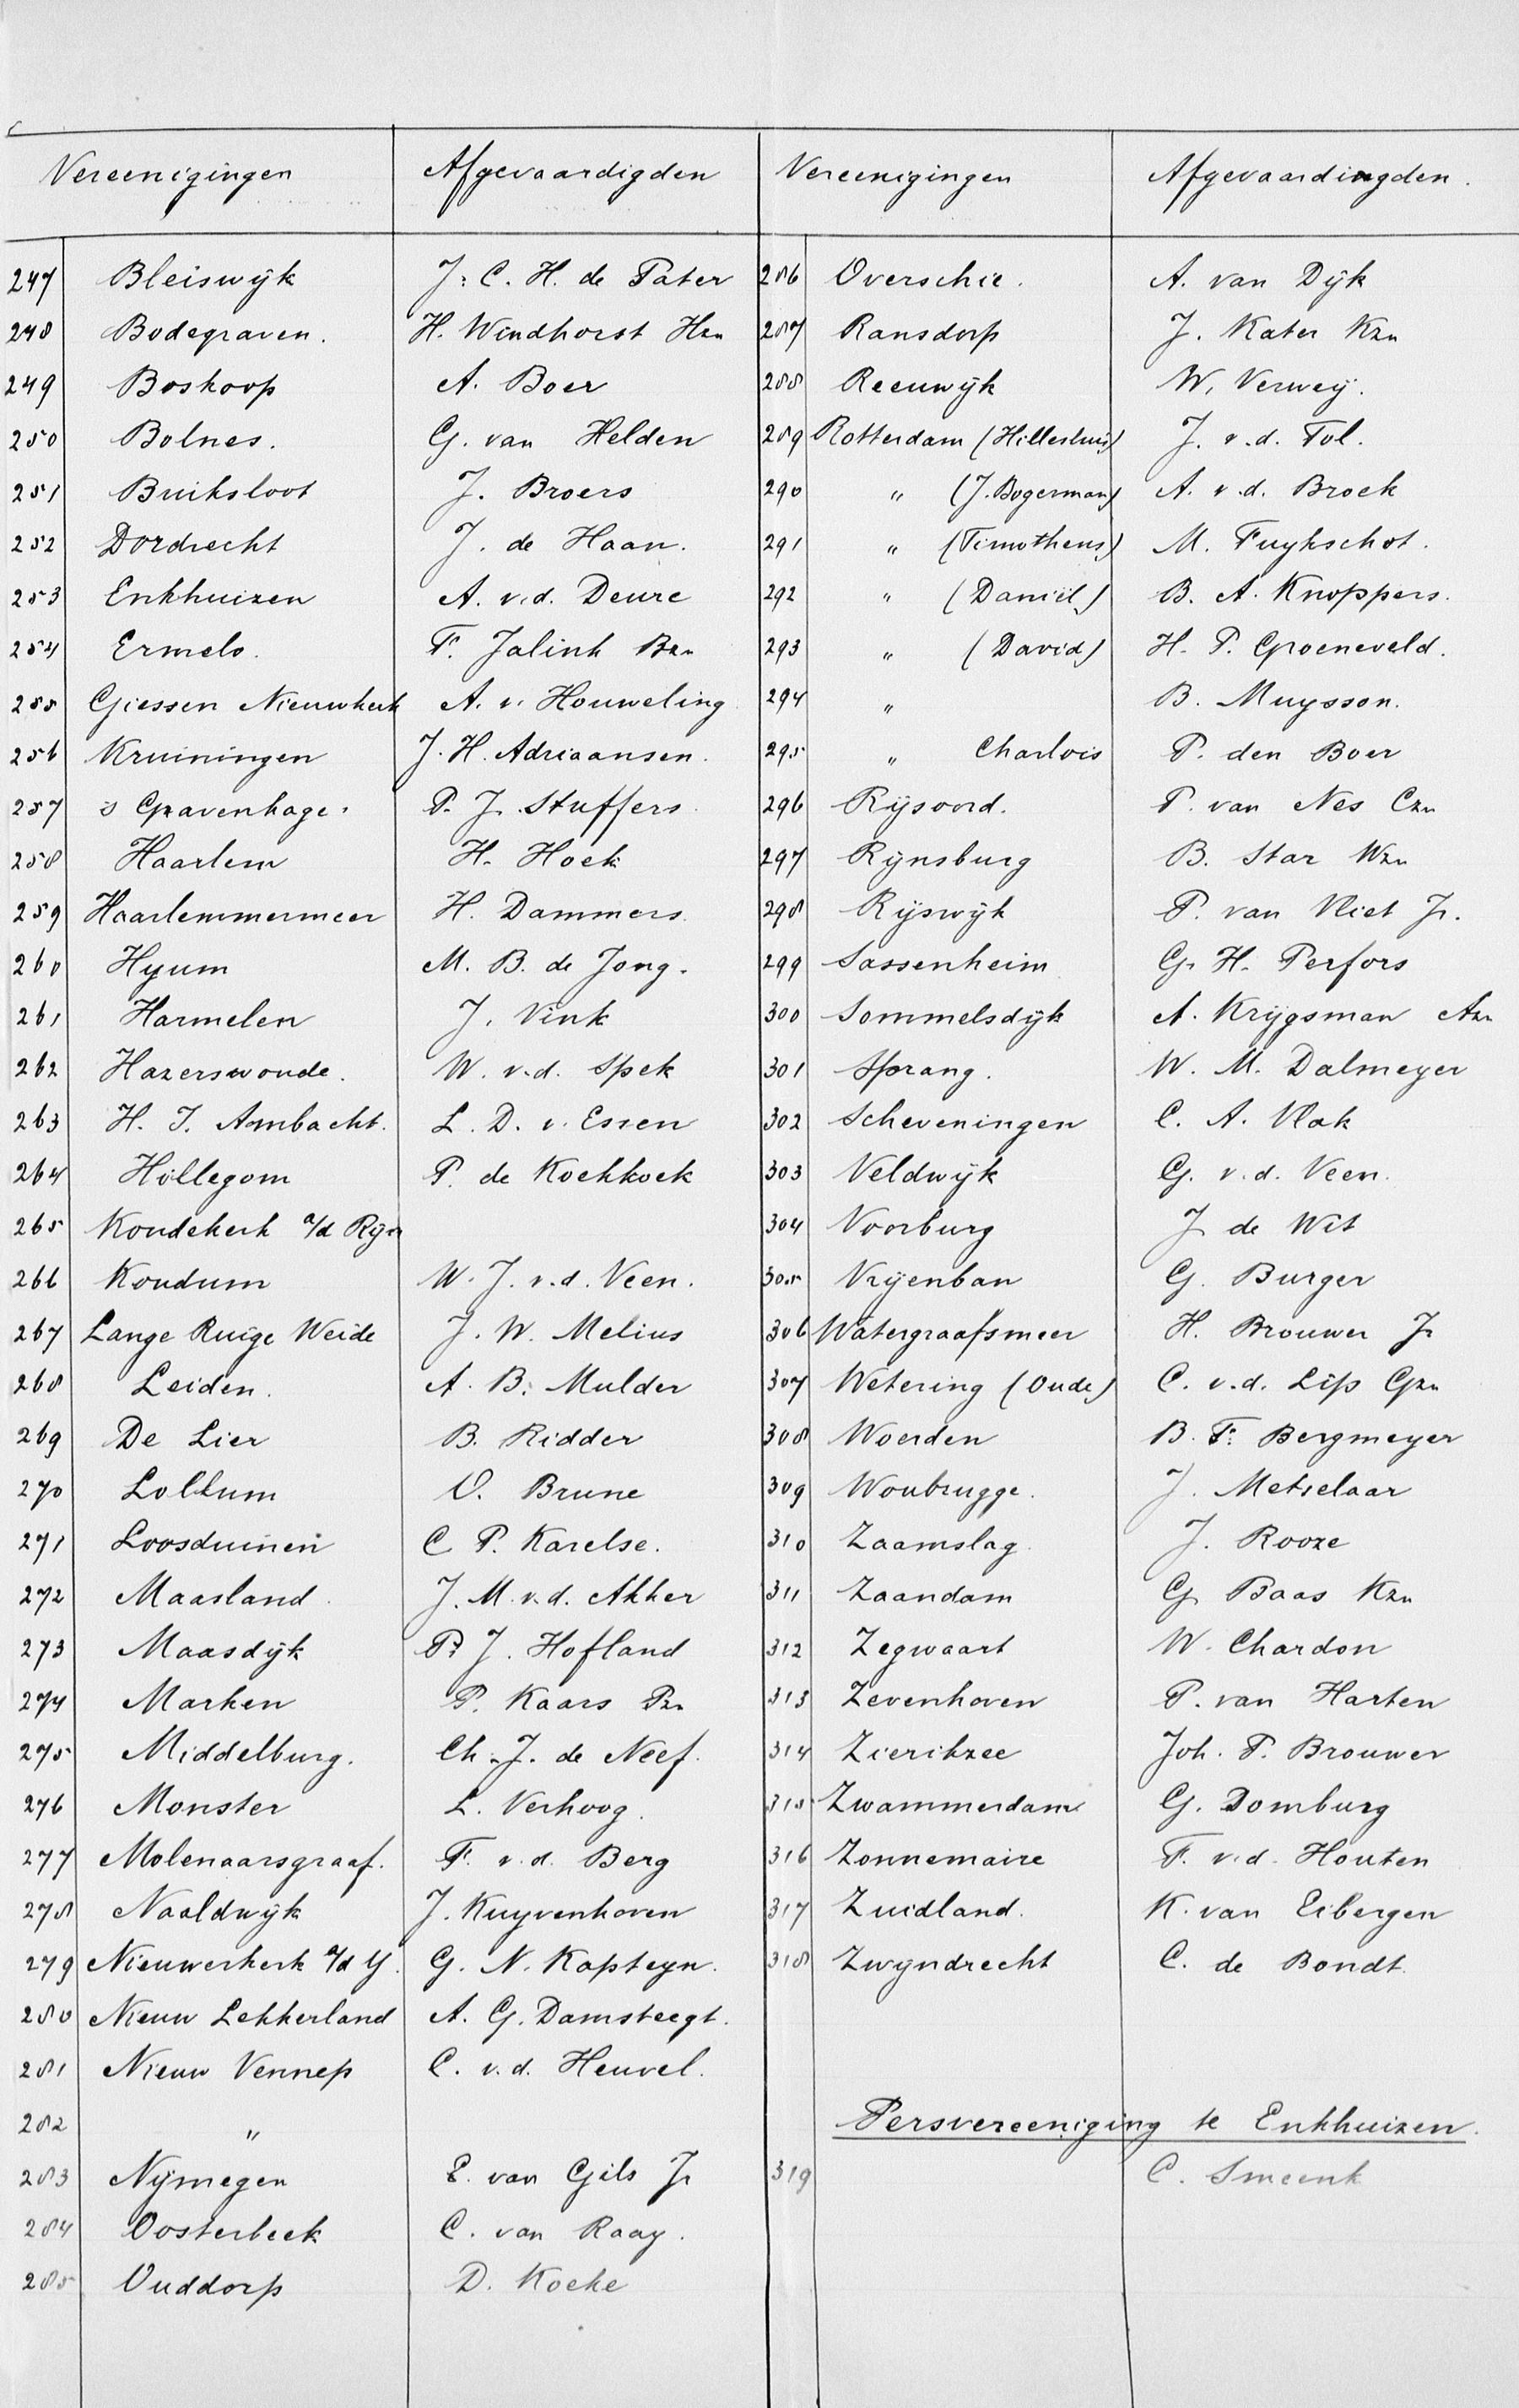 Vereenigingen Afgevaardigden
247 Bleiswijk J. C. H. de Pater
248 Bodegraven. H. Windhorst Hzn
249 Boskoop A. Boer
250 Bolnes. G. van Helden
251 Buiksloot J. Broers
252 Dordrecht J. de Haan.
253 Enkhuizen A. v.d. Deure
254 Ermelo. F. Jalink Bzn
255 Giessen Nieuwkerk A. v. Houweling
256 Kruiningen J. H. Adriaansen.
257 's Gravenhage. P. J. Stuffers.
258 Haarlem H. Hoek
259 Haarlemmermeer H. Dammers
260 Hijum M. B. de Jong.
261 Harmelen J. Vink
262 Hazerswoude. W. v.d. Spek
263 H. I. Ambacht. L. D. v. Essen
264 Hillegom P. de Koekkoek
265 Koudekerk a/d Rijn
266 Koudum W. J. v.d. Veen.
267 Lange Ruige Weide J. W. Melius
268 Leiden. A. B. Mulder
269 De Lier B. Ridder
270 Lollum O. Brune
271 Loosduinen C. P. Karelse.
272 Maasland J. M. v.d. Akker
273 Maasdijk P. J. Hofland
274 Marken P. Kaars Pzn
275 Middelburg. Ch. J. de Neef.
276 Monster L. Verhoog.
277 Molenaarsgraaf. F. v.d. Berg
278 Naaldwijk J. Kuyvenhoven
279 Nieuwerkerk a/d Y. G. N. Kapteyn.
280 Nieuw Lekkerland A. G. Damsteegt.
281 Nieuw Vennep C. v.d. Heuvel.
282 "
283 Nijmegen E. van Gils Jr
284 Oosterbeek C. van Raay.
285 Ouddorp D. Koeke
Vereenigingen Afgevaardingden.
286 Overschie. A. van Dijk
287 Ransdorp J. Kater Kzn
288 Reeuwijk W. Verweij.
289 Rotterdam (Hillesluis) J. v.d. Tol.
290 " (J. Bogerman) A. v.d. Broek
291 " (Timotheus) M. Fuykschot.
292 " (Daniël) B. A. Knoppers.
293 " (David) H. P. Groeneveld.
294 " B. Muysson.
295 " Charlois P. den Boer
296 Rijsoord. P. van Nes Czn
297 Rijnsburg B. Star Wzn
298 Rijswijk P. van Vliet Jr.
299 Sassenheim G. H. Perfors
300 Sommelsdijk A. Krijgsman Azn
301 Sprang. W. M. Dalmeyer
302 Scheveningen C. A. Vlak
303 Veldwijk G. v.d. Veen.
304 Voorburg J de Wit
305 Vrijenban G. Burger
306 Watergraafsmeer H. Brouwer Jr
307 Wetering (Oude) C. v.d. Lip Gzn
308 Woerden B. F. Bergmeyer
309 Woubrugge. J. Metselaar
310 Zaamslag J. Rooze
311 Zaandam G. Baas Kzn
312 Zegwaart W. Chardon
313 Zevenhoven P. van Harten
314 Zierikzee Joh. P. Brouwer
315 Zwammerdam G. Domburg
316 Zonnemaire F. v.d. Houten
317 Zuidland. K. van Eibergen
318 Zwijndrecht C. de Bondt.
Persvereeniging te Enkhuizen.
319 C. Smeenk